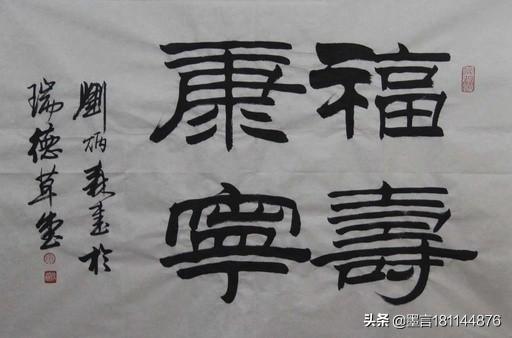 福壽
康寧
劉炳森書於
瑞德草堂
头条 @墨言181144876